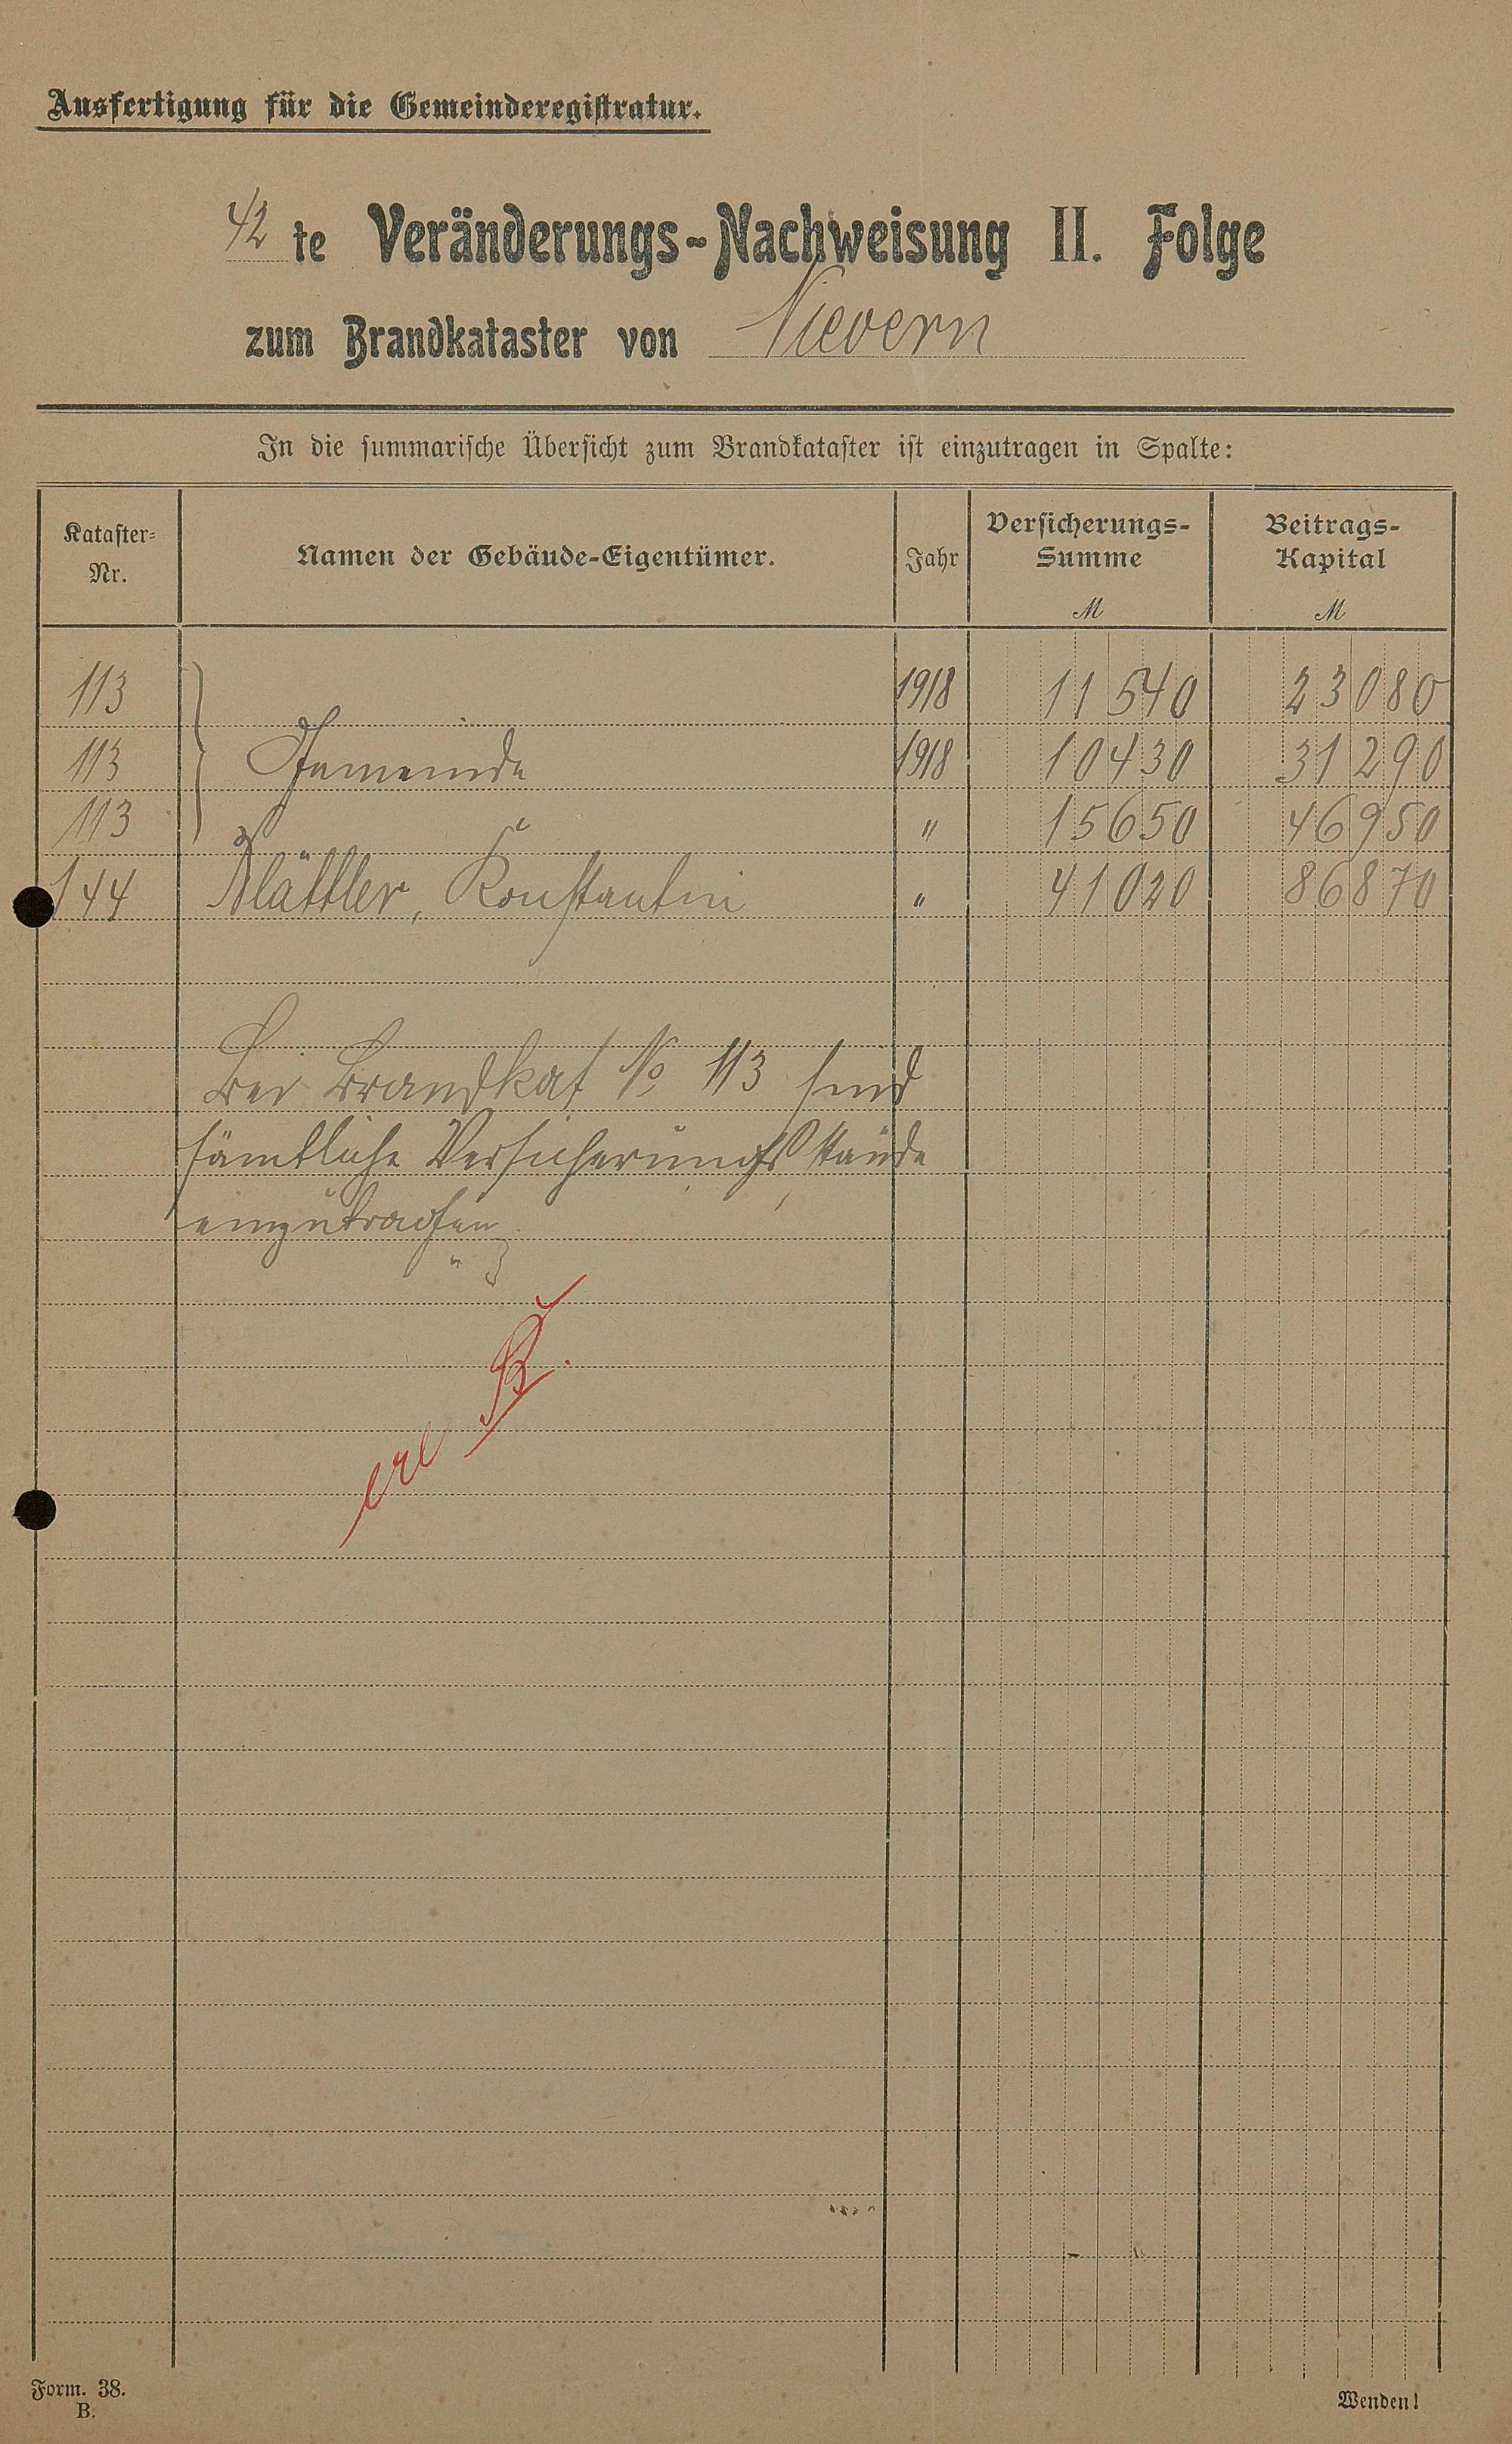 Ausfertigung für die Gemeinderegistratur.
42 te Veränderungs-Nachweisung II. Folge
zum Brandkataster von Nievern
In die summarische Übersicht zum Brandkataster ist einzutragen in Spalte:
Kataster-Nr. Namen der Gebäude-Eigentümer. Jahr Versicherungs-Summe M Beitrags-Kapital M
113 1918 11540 23080
113 Gemeinde 1918 10430 31290
113 " 15650 46950
144 Blättler, Konstantin " 41020 86870
Bei Brandkat No 113 sind
sämtliche Versicherungsstände
einzutragen
erl B.
Form. 38.
B.
Wenden!